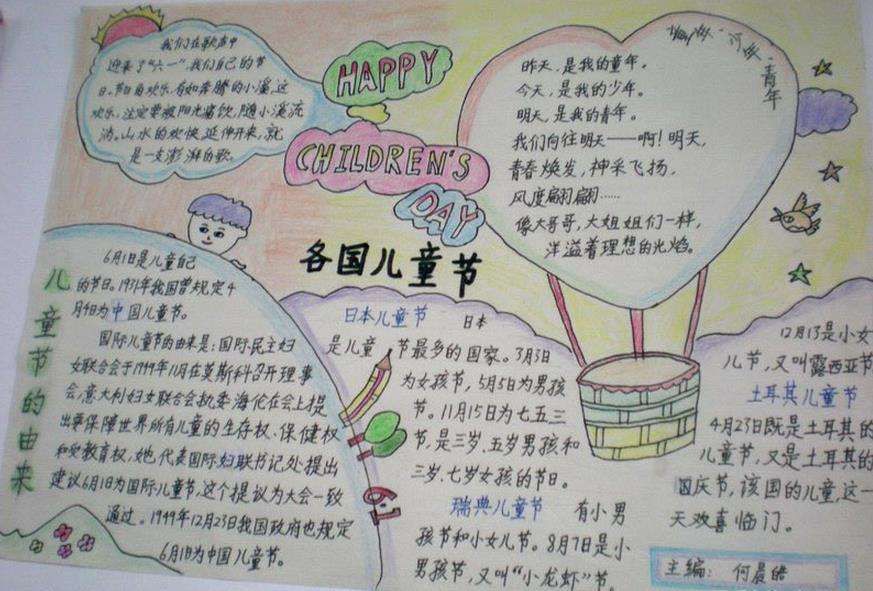 我们在歌声中
迎来了“六一”,我们自己的节
日。节日的欢乐,有如奔腾的小溪,这
欢乐,注定要被阳光痛饮,随小溪流
淌。山水的欢快延伸开来,就
是一支澎湃的歌。
HAPPY
CHILDREN'S
DAY
童年·少年·青年
昨天,是我的童年。
今天,是我的少年。
明天,是我的青年。
我们向往明天——啊!明天,
青春焕发,神采飞扬,
风度翩翩……
像大哥哥,大姐姐们一样,
洋溢着理想的光焰。
各国儿童节
儿童节的由来
6月1日是儿童自己
的节日。1931年我国曾规定4
月4日为中国儿童节。
国际儿童节的由来是:国际民主妇
女联合会于1949年11月在莫斯科召开理事
会,意大利妇女联合会执委海伦在会上提
出要保障世界所有儿童的生存权、保健权
和受教育权,她代表国际妇联书记处提出
建议6月1日为国际儿童节,这个提议为大会一致
通过。1949年12月23日我国政府也规定
6月1日为中国儿童节。
日本儿童节 日本
是儿童节最多的国家。3月3日
为女孩节,5月5日为男孩
节。11月15日为七五三
节,是三岁、五岁男孩和
三岁、七岁女孩的节日。
瑞典儿童节 有小男
孩节和小女儿节。8月7日是小
男孩节,又叫“小龙虾”节。
61
12月13是小女
儿节,又叫露西亚节
土耳其儿童节
4月23日既是土耳其的
儿童节,又是土耳其的
国庆节,该国的儿童这一
天欢喜临门。
主编: 何晨皓